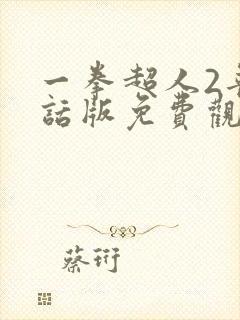 一拳超人2
話版免費觀
蔡珩